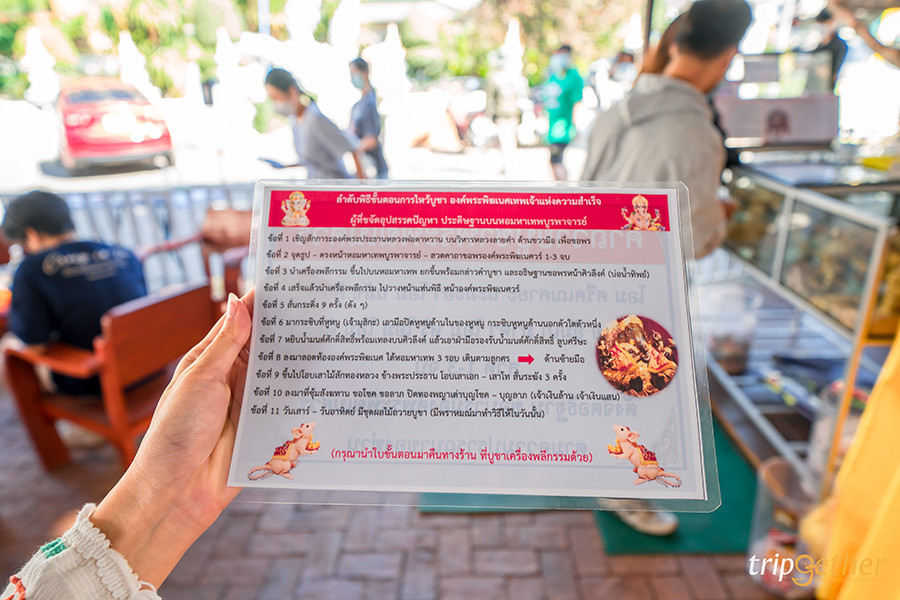 ลำดับพิธีขั้นตอนการไหว้บูชา องค์พระพิฆเนศเทพเจ้าแห่งความสำเร็จ
ผู้ที่ขจัดอุปสรรคปัญหา ประดิษฐานบนหอมหาเทพบูรพาจารย์
ข้อที่ 1 เชิญสักการะองค์พระประธานหลวงพ่อตาหวาน บนวิหารหลวงลายคำ ด้านขวามือ เพื่อขอพร
ข้อที่ 2 จุดธูป – ตรงหน้าหอมหาเทพบูรพาจารย์ – สวดคาถาขอพรองค์พระพิฆเนศวร์ 1-3 จบ
ข้อที่ 3 นำเครื่องพลีกรรม ขึ้นไปบนหอมหาเทพ ยกขึ้นพร้อมกล่าวคำบูชา และอธิษฐานขอพรหน้าศิวลึงค์ (บ่อน้ำทิพย์)
ข้อที่ 4 เสร็จแล้วนำเครื่องพลีกรรม ไปวางหน้าแท่นพิธี หน้าองค์พระพิฆเนศวร์
ข้อที่ 5 สั่นกระดิ่ง 9 ครั้ง (ดัง ๆ)
ข้อที่ 6 มากระซิบที่หูหนู (เจ้ามุสิกะ) เอามือปิดหูหนูด้านในของหูหนู กระซิบหูหนูด้านนอกตัวใดตัวหนึ่ง
ข้อที่ 7 หยิบน้ำมนต์ศักดิ์สิทธิ์พร้อมเทลงบนศิวลึงค์ แล้วเอาฝ่ามือรองรับน้ำมนต์ศักดิ์สิทธิ์ ลูบศรีษะ
ข้อที่ 8 ลงมาลอดท้ององค์พระพิฆเนศ ใต้หอมหาเทพ 3 รอบ เดินตามลูกศร ➡ ด้านซ้ายมือ
ข้อที่ 9 ขึ้นไปโอบเสาไม้สักทองหลวง ข้างพระประธาน โอบเสาเอก – เสาโท สั่นระฆัง 3 ครั้ง
ข้อที่ 10 ลงมาที่ซุ้มสังฆทาน ขอโชค ขอลาภ ปิดทองพญาเต่าบุญโชค – บุญลาภ (เจ้าเงินล้าน เจ้าเงินแสน)
ข้อที่ 11 วันเสาร์ – วันอาทิตย์ มีชุดผลไม้ถวายบูชา (มีพราหมณ์มาทำวิธีให้ในวันนั้น)
(กรุณานำใบขั้นตอนมาคืนทางร้าน ที่บูชาเครื่องพลีกรรมด้วย)
tripgether